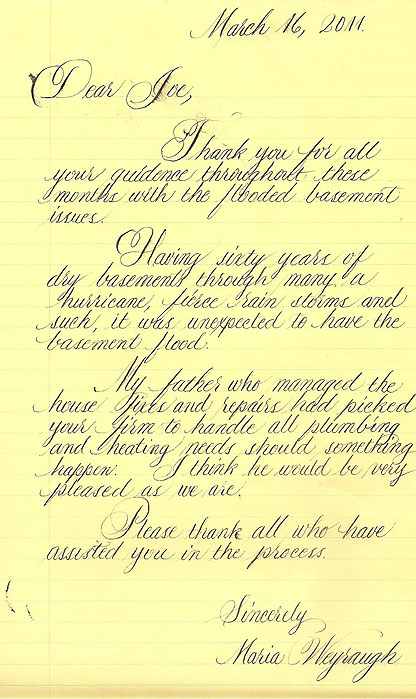 March 16, 2011.
Dear Joe,
Thank you for all
your guidence throughout these
months with the flooded basement
issues.
Having sixty years of
dry basements through many a
hurricane, fierce rain storms and
such, it was unexpected to have the
basement flood.
My father who managed the
house fixes and repairs had picked
your firm to handle all plumbing
and heating needs should something
happen. I think he would be very
pleased as we are.
Please thank all who have
assisted you in the process.
Sincerely
Maria Weyraugh